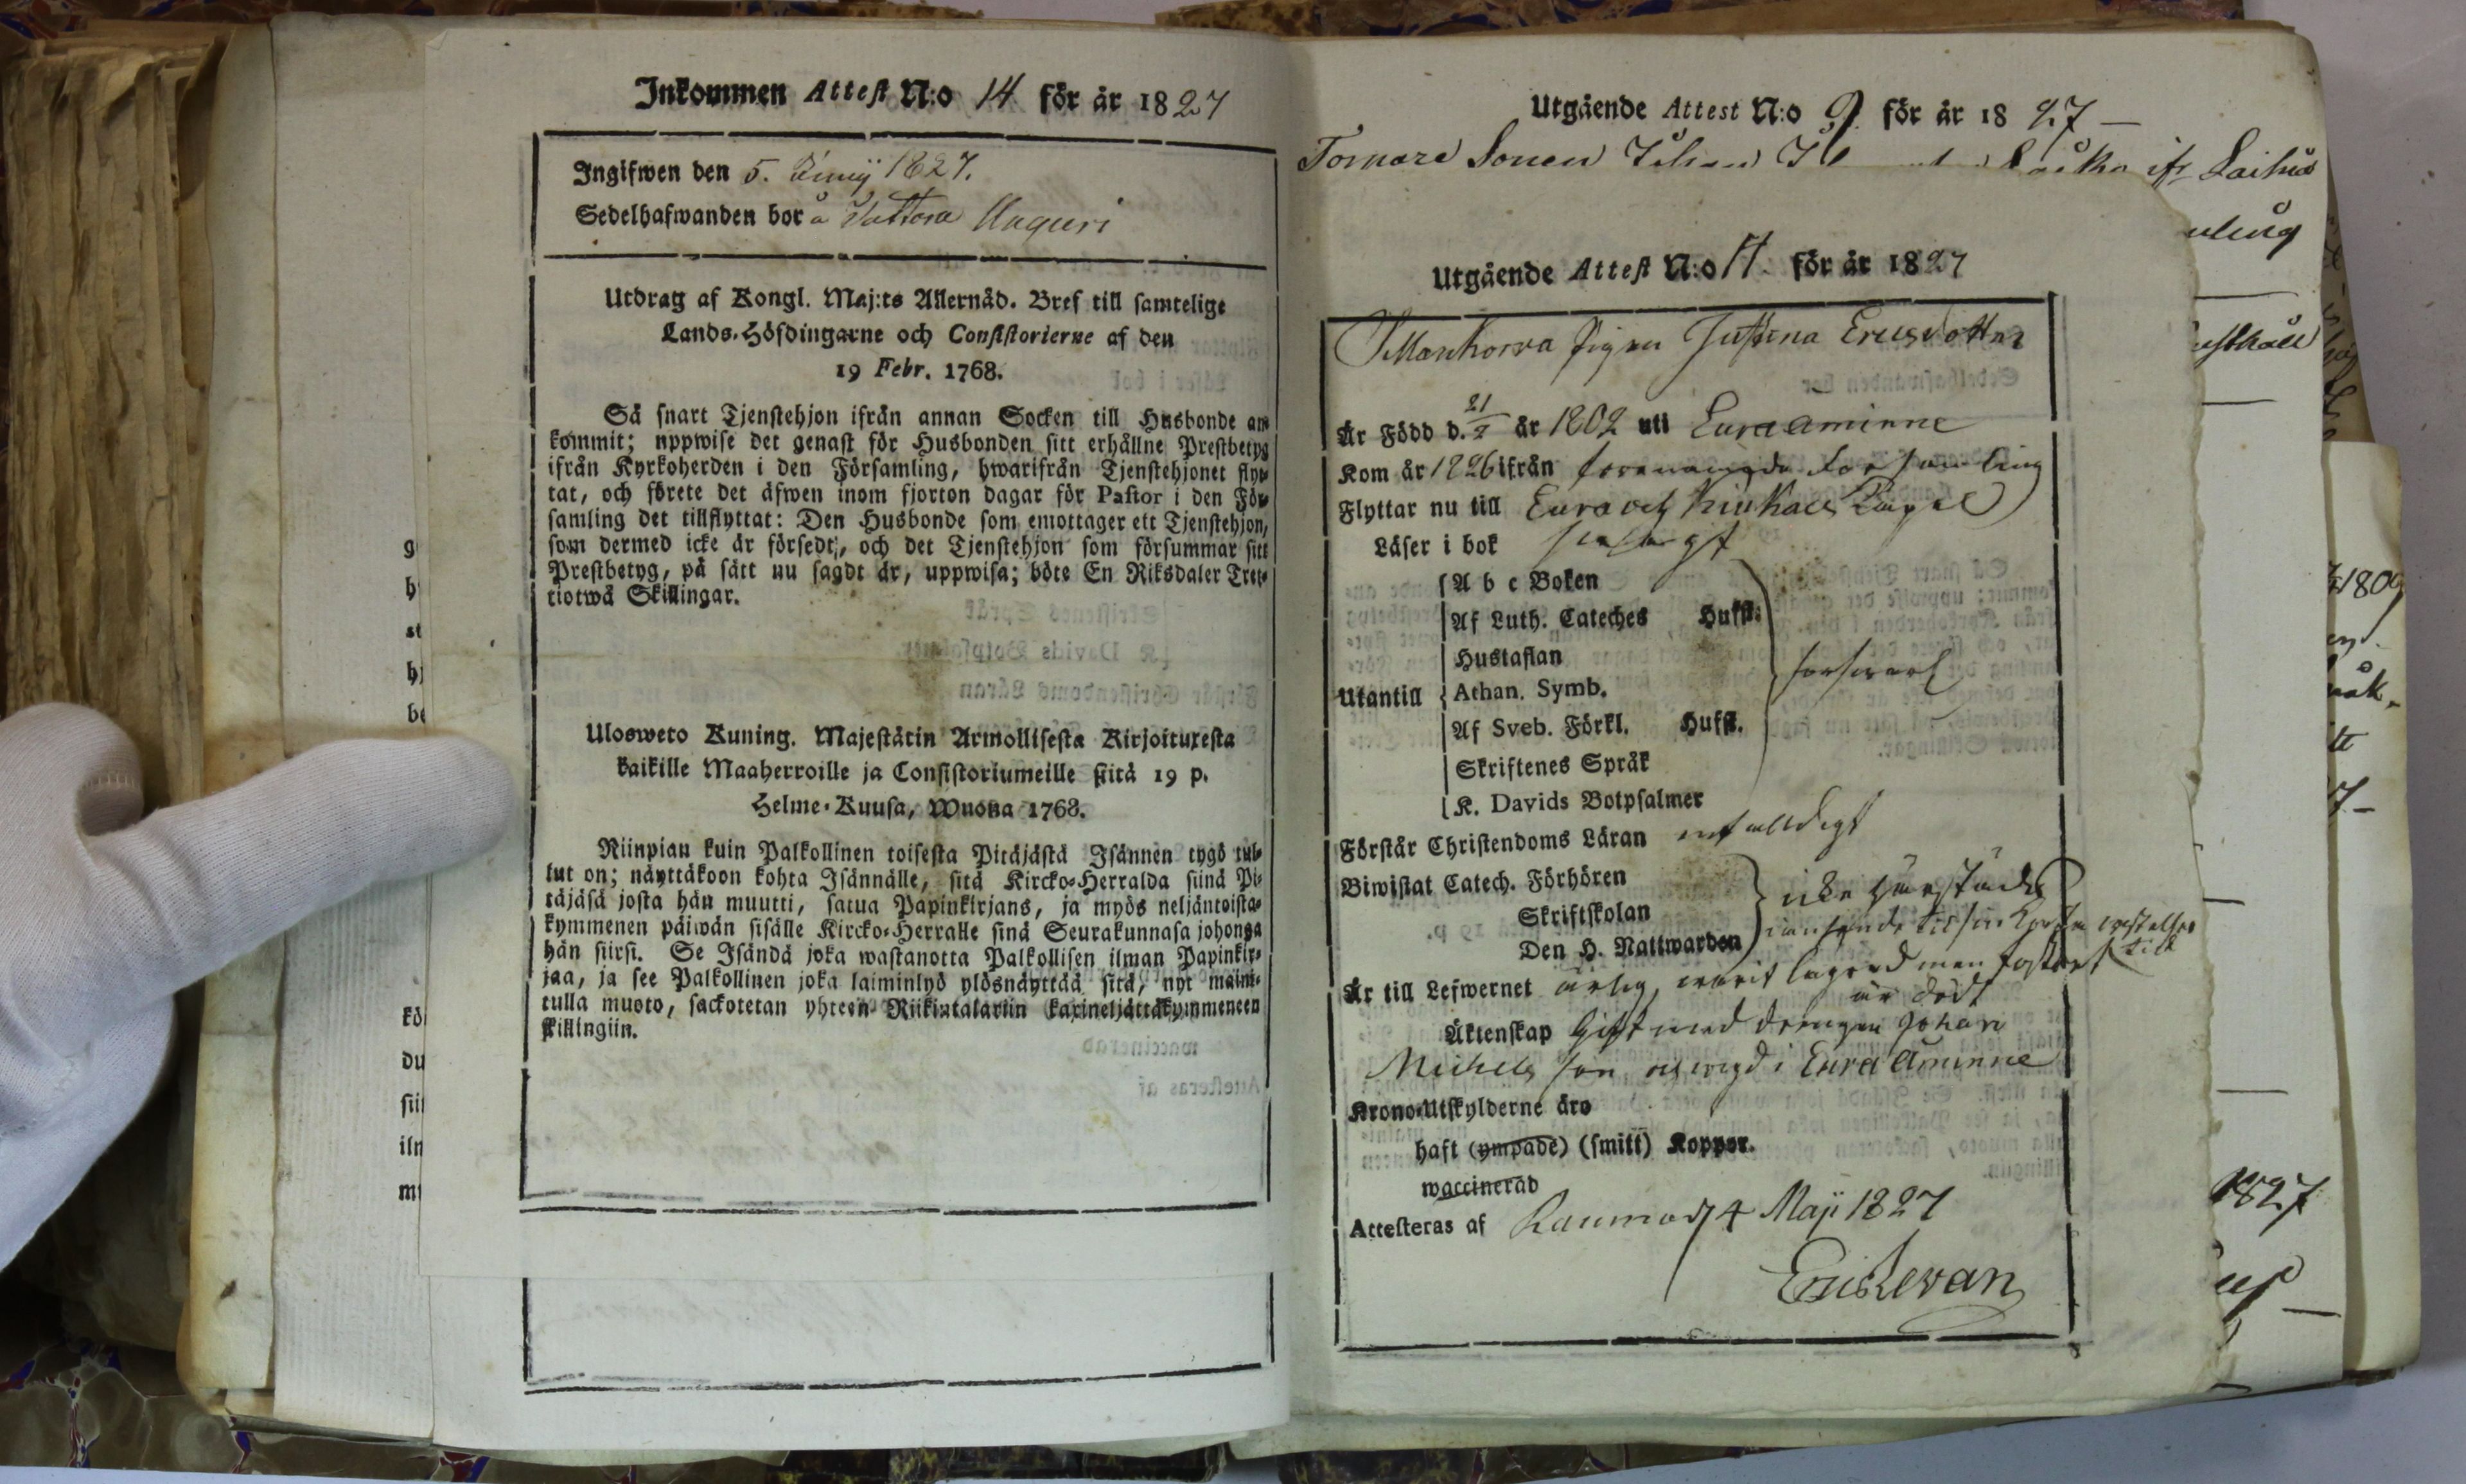 Inkommen Attest N:o 14 för år 1827
Ingifwen den 5. Junij 1827.
Sedelhafwanden bor å Vattora Uuguri
Utdrag af Kongl. Maj:ts Allernåd. Bref till samtelige
Lands-Höfdingarne och Consistorierne af den
19 Febr. 1768.
Så snart Tjenstehjon ifrån annan Socken till Husbonde an
kommit; uppwise det genast för Husbonden sitt erhållne Prestbetyg
ifrån Kyrkoherden i den Församling, hwarifrån Tjenstehjonet flyt-
tat, och förete det äfwen inom fjorton dagar för Pastor i den För-
samling det tillflyttat: Den Husbonde som emottager ett Tjenstehjon,
som dermed icke är försedt, och det Tjenstehjon som försummar sitt
Prestbetyg, på sätt nu sagdt är, uppwisa; böte En Riksdaler Tret-
tiotwå Skillingar.
Ulosweto Kuning. Majestätin Armollisesta Kirjoituxesta
kaikille Maaherroille ja Consistoriumeille siitä 19 p.
Helme-Kuusa, Wuonna 1768.
Niinpian kuin Palkollinen toisesta Pitäjästä Isännen tygö tul-
lut on; näyttäköön kohta Isännälle, sitä Kircko-Herralda siinä Pi-
täjäsä josta hän muutti, saatua Papinkirjans, ja myös neljäntoista-
kymmenen päiwän sisälle Kircko-Herralle siinä Seurakunnasa johonga
hän siirsi. Se Isändä joka wastanotta Palkollisen ilman Papinkir-
jaa, ja see Palkollinen joka laiminlyö ylösnäyttää sitä, nyt maini-
tulla muoto, sackotetan yhteen Riikintalariin kaxineljättäkymmeneen
skillingiin.
Utgående Attest N:o 9 för år 1827
Tornare Sonen Johan ifr Laihia
Utgående Attest N:o 17. för år 1827
pigan Justina Ericsdotter
Är Född d. 21/2 år 1802 uti Eura aminne
Kom år 1826 ifrån förenämnde församling
Flyttar nu till Eura och Kiukais Capel
Läser i bok
A b c Boken
Af Luth. Cateches Huffst.
Hustaflan
Utantill Athan. Symb. försvarl
Af Sveb. Förkl. Huffst.
Skriftenes Språk
K. Davids Botpsalmer
Förstår Christendoms Läran enfalldigt
Biwistat Catech. Förhören
Skriftskolan icke härstädes
Den H. Nattwarden
Är till Lefwernet ärlig, warit lägrad men fostret
är dödt
Äktenskap Gift med drengen Johan
Michels son och wigd i Eura Aminne
Krono-Utskylderne äro
haft (ympade) (smitt) Koppor.
waccinerad
Attesteras af Raumo d 4 Maji 1827
Eric Levan
1827